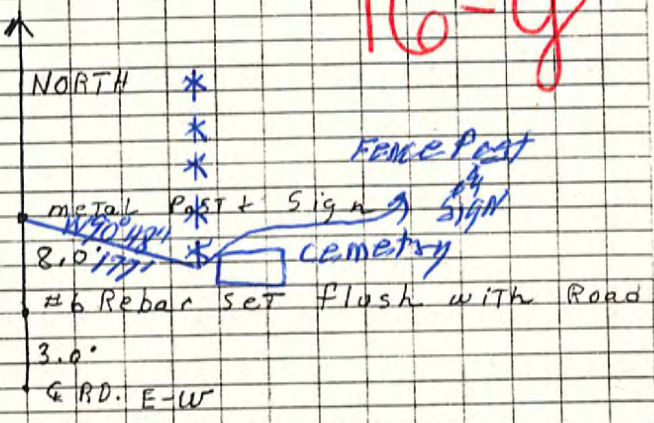 16-g
NORTH
Fence Post
&
SIGN
metal Post & Sign
8.0'
177'
cemetry
#6 Rebar set flush with Road
3.0'
℄ RD. E-W